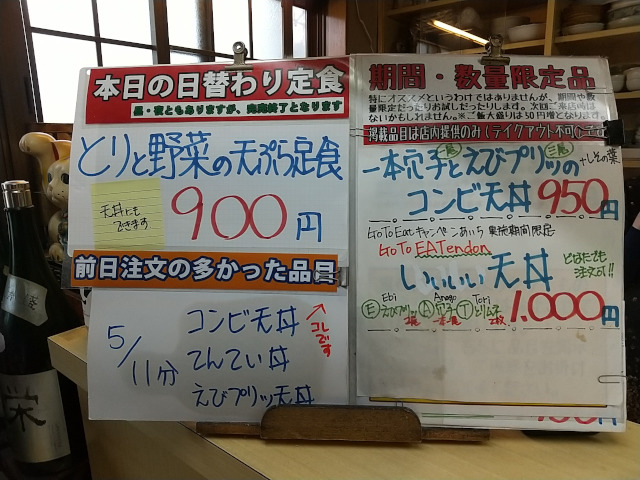 本日の日替わり定食
昼・夜ともありますが、売切終了となります
とりと野菜の天ぷら定食
天丼にも
できます
900円
前日注文の多かった品目
5/11分
コンビ天丼
てんてい丼
えびプリッツ天丼
コレです
期間・数量限定品
特にオススメというわけではありませんが、期間や数
量限定だったりお試しだったりします。次回ご来店時は
ないかもしれません。※ご飯大盛りは50円増となります
掲載品目は店内提供のみ(テイクアウト不可)
一本穴子とえびプリッツの
一尾
三尾
+しその葉
コンビ天丼 950円
GoToEatキャンペーンあいち 実施期間限定
GoTo EATendon
いいいい天丼
どなたでも
注文可!!
Ebi
Anago
Tori
Eえびプリッツ A穴子 Tとりムネ
2尾
一本一尾
2枚
1.000円
栄